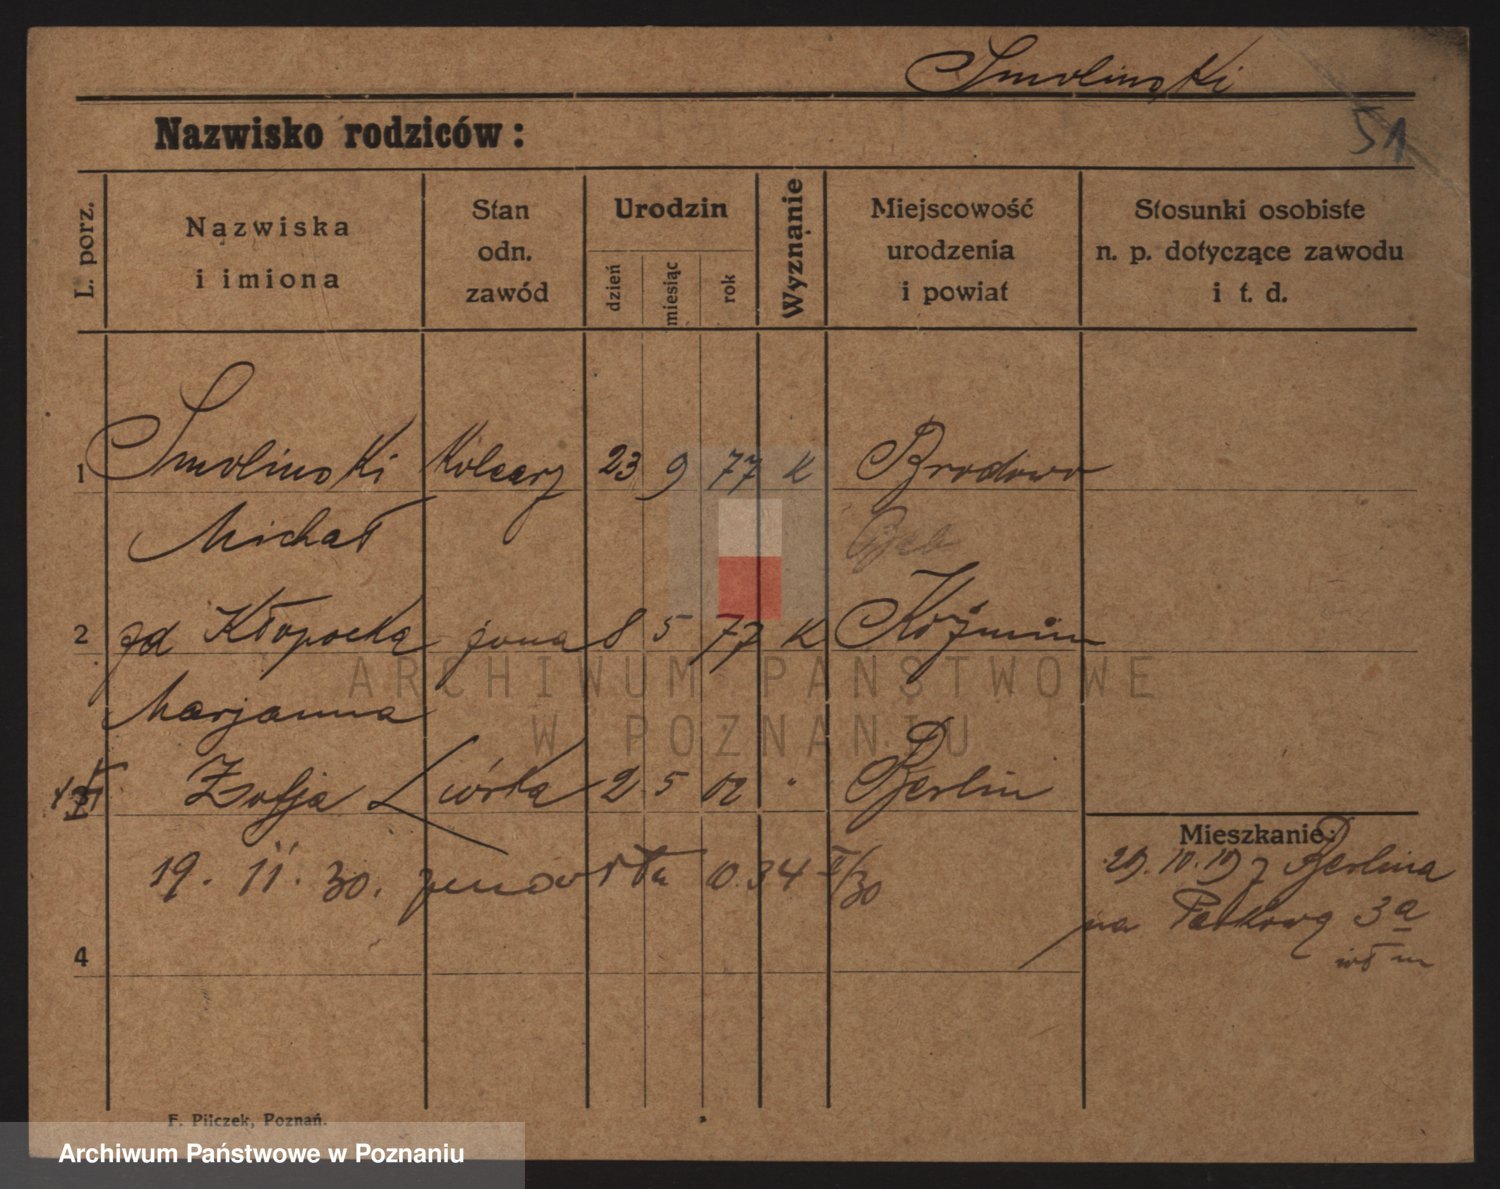 Smolinski
51
Nazwisko rodziców:
L. porz.
Nazwiska i imiona
Stan odn. zawód
Urodzin
dzień miesiąc rok
Wyznanie
Miejscowość urodzenia i powiat
Stosunki osobiste n. p. dotyczące zawodu i t. d.
1 Smolinski 23 9 77 k Brodowo
Michał
2 zd Kłopocka żona 8 5 77 k Koźmin
Marjanna
Zofja córka 2 5 02 " Berlin
Mieszkanie:
19. 11. 30. 10.34 II/30
29. 10. 19 z Berlina
na 3a
4
F. Pilczek, Poznań.
ARCHIWUM PAŃSTWOWE
W POZNANIU
Archiwum Państwowe w Poznaniu